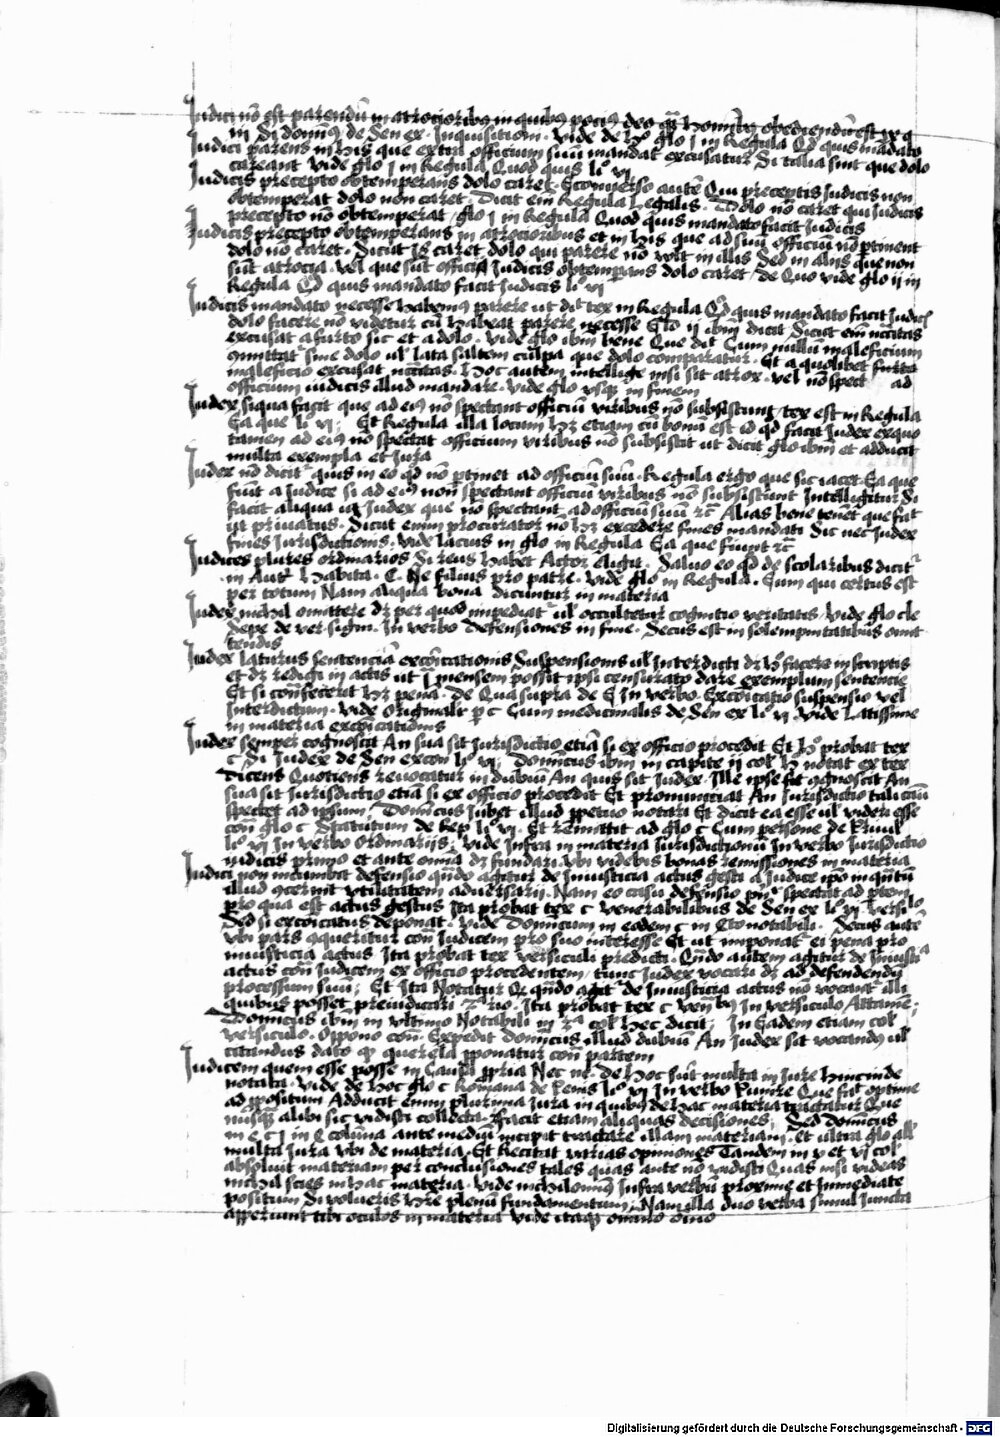 Judici nō est parendū in atrocioribus in quibus pocius deo quā hominibus obediendū est ix q
iii Si dominus de Sen ex. Inquisitioni. Vide de hoc glo j in Regula Qd quis mādato
Judici parens in his que extra officium suū mandat excusatur Si talia sint que dolo
careant vide glo j in Regula Quod quis li° vi
Judicis precepto obtemperans dolo caret. Econuerso autē Qui preceptis Judicis non
obtemperat dolo non caret. Dicit em Regula Legalis. Dolo nō caret qui Judicis
precepto nō obtemperat / glo j in Regula Quod quis mandato facit Judicis
Judicis precepto obtemperans in atrocioribus et in his que ad suū officiū nō ptinent
dolo nō caret. Sicut Is caret dolo qui parere nō volt in illis Sed in aliis que non
sūt atrocia. vel que sūt officij Judicis obtemperans dolo caret / de Quo vide glo ii in
Regula Qd quis mandato facit Judicis li° vi
Judicis mandato necesse habemus parere ut dit tex in Regula Qd quis mandato facit Judicis
dolo facere nō videtur cū habeat parere necesse Glo ij ibm dicit Sicut em nccitas
excusat a furto sic et a dolo. Vide glo ibm bene Que dit Cum nullū maleficium
cmittat sine dolo ul lata saltem culpa que dolo comparatur. Et a quolibet furto
maleficio excusat nccitas. Hoc autem intellige nisi sit atrox. vel nō spect ad
officium iudicis illud mandare. Vide glo usq in finem
Judex siqua facit que ad eius nō spectant officiū viribus nō subsistunt / tex est in Regula
Ea que li° vi; Et Regula illa locum hz etiam cū bonū est id qd facit Judex exquo
tamen ad eius nō spectat officium viribus nō subsistit ut dicit glo ibm et adducit
multa exempla et Jura
Judex nō dicit quis in eo qd nō ptinet ad officiū suū. Regula ergo que sic iacet Ea que
fiūt a Judice si ad eius nō spectant officiū viribus nō subsistunt Intelligitur Si
facit aliqua ut Judex que nō spectant ad officiū suū rc Alias bene tenet que fat
ut priuatus. Sicut enim procurator nō hz excedere fines mandati Sic nec Judex
fines Jurisdictionis. Vide lacius in glo in Regula Ea que fiunt rc
Judices plures ordinarios Si reus habet Actor eligit. Saluo eo qd de scolaribus dicit
in Aut Habita. C. Ne filius pro patre. Vide glo in Regula. Eum qui certus est
per totum Nam aliqua bona dicuntur in materia
Judex nichil omittere dz per quod impediat ul occultetur cognitio veritatis. Vide glo cle
Sepe de ver. signi. In verbo Defensiones in fine. Secus est in solempnitatibus omit
tendis
Judex laturus sentenciā excōicationis Suspensionis ul Interdicti dz h° facere in scriptis
et dz redigi in actis ut j mensem possit ipsi censurato dare exemplum sentencie
Et si cōn fecerit hz pena. De Qua supra de E In verbo. Excōicatio suspensio vel
Interdictum. Vide Originalr p c Cum medicinalis de Sen ex li° vi. Vide Latissime
in materia excōicationis
Judex semper cognoscit An sua sit Jurisdictio etiā si ex officio procedit Et h° probat tex
c Si Judex de Sen excon li° vi; Dominicus ibm in capite ij col h° notat ex tex
dicens Quotiens reuocatur in dubiū An quis sit Judex. Ille ipse fit cgnoscit An
sua sit Jurisdictio etiā si ex officio procedit Et pronunciat An Jurisdictio tali cau
spectet ad ipsum. Dominicus Jubet illud ppetuo notari Et dicit ea esse ul videri esse
con glo c Statutum de hep li° vi. Et remittit ad glo c Cum persone de Priuil
li° vi In verbo Ordinarijs; Vide Infra in materia Jurisdictionū In verbo Jurisdictio
iudicis primo et ante omnia dz fundari. Ubi videbis bonas remissiones in materia
Judici non incumbat defensio quādo agitur de Iniusticia actus gesti a Judice ipo inqntū
illud cernit vtilitatem aduersarij. Nam eo casu defensio pnr spectat ad ptem
pro qua est actus gestus Ita probat tex c Venerabilibus de Sen ex li° vi. versi
Sed si excōicatus deponat. Vide Dominicum in eodem c in Cto notabili. Secus autē
ubi pars cqueratur con Judicem pro suo interesse Et ut imponat ei pena pro
iniusticia actus Ita probat tex versiculi predicti. Qndo autem agitur de Iniusti
actus con Judicem ex officio procedentem / tunc Judex vocari dz ad defendendū
processum suū; Et Ita Notatur Qd qndo agit de Iniusticia actus nō vocant illi
quibus posset preiudicari. Ita probat tex c Ven In versiculo Attamē;
Dominicus ibm in vltimo Notabili in col hec dicit; In Eadem etiam col
versiculo. Opono con. Expedit Dominicus illud dubiū An Judex sit vocandus ul
citandus dato qd querela pponatur con partem
Judicem quem esse posse in Causa ppria Nec ne. De hoc sūt multa in Jure hincinde
notata. Vide de hoc glo c Romana de Penis li° vi In verbo Punire Que fat optime
ad ppositum Adducit enim plurima Jura in quibus de hac materia tractatur Que
nusq alibi sic vidisti collecta. Facit etiam aliquas decisiones; Sed Dominicus
in e c j in Q columa ante mediū incipit tractare illam materiam. et ultra glo all
multa Jura ubi de materia. Et Recitat varias opiniones Tandem in v et vi col
absoluit materiam per conclusiones tales quas ante nō vidisti Quas nisi videas
nichil scies in hac materia. Vide nichilominus Infra verbū proxime et Inmediate
positum Si volueris hre plenū fundamentum; Nam illa duo verba simul Juncta
apperiunt tibi oculos in materia vide itaq omnino
Digitalisierung gefördert durch die Deutsche Forschungsgemeinschaft - DFG